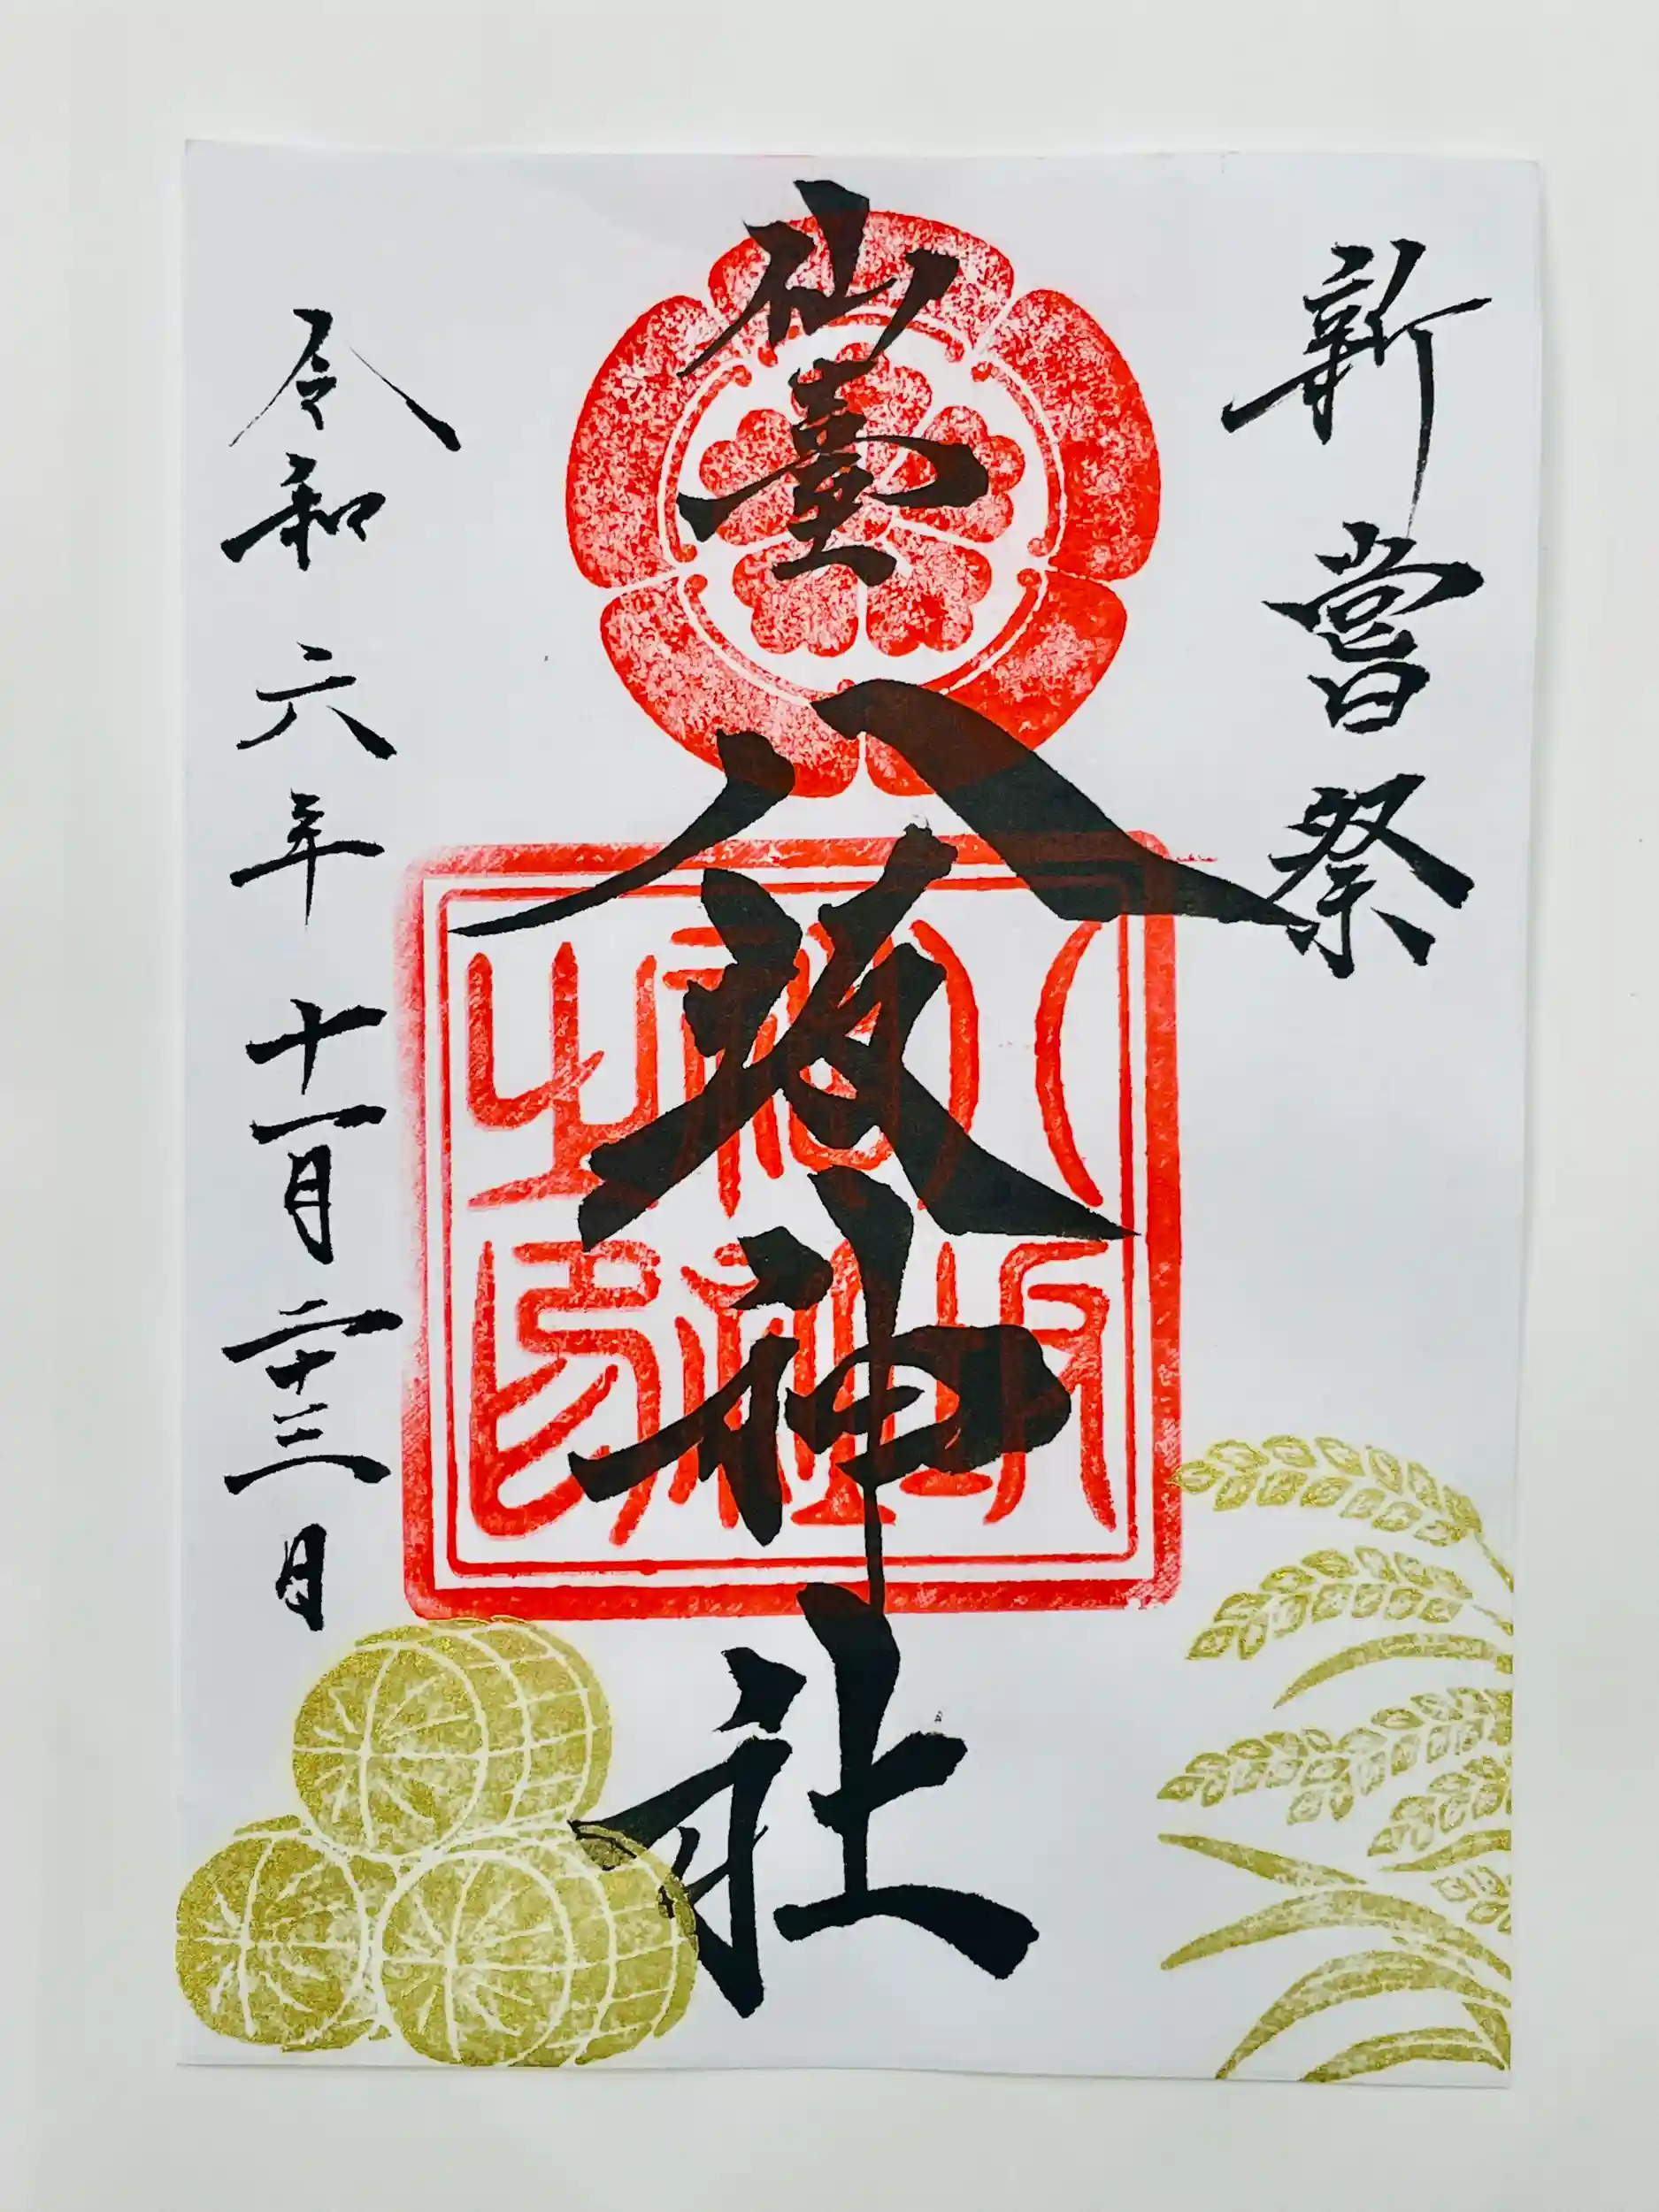 新嘗祭
仙臺
八坂神社
八坂
神社
之印
令和六年十一月二十三日